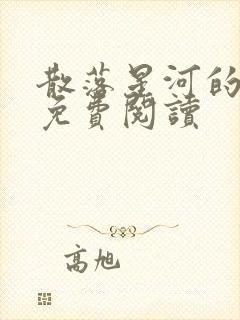 散落星河的
免費閱讀
高旭